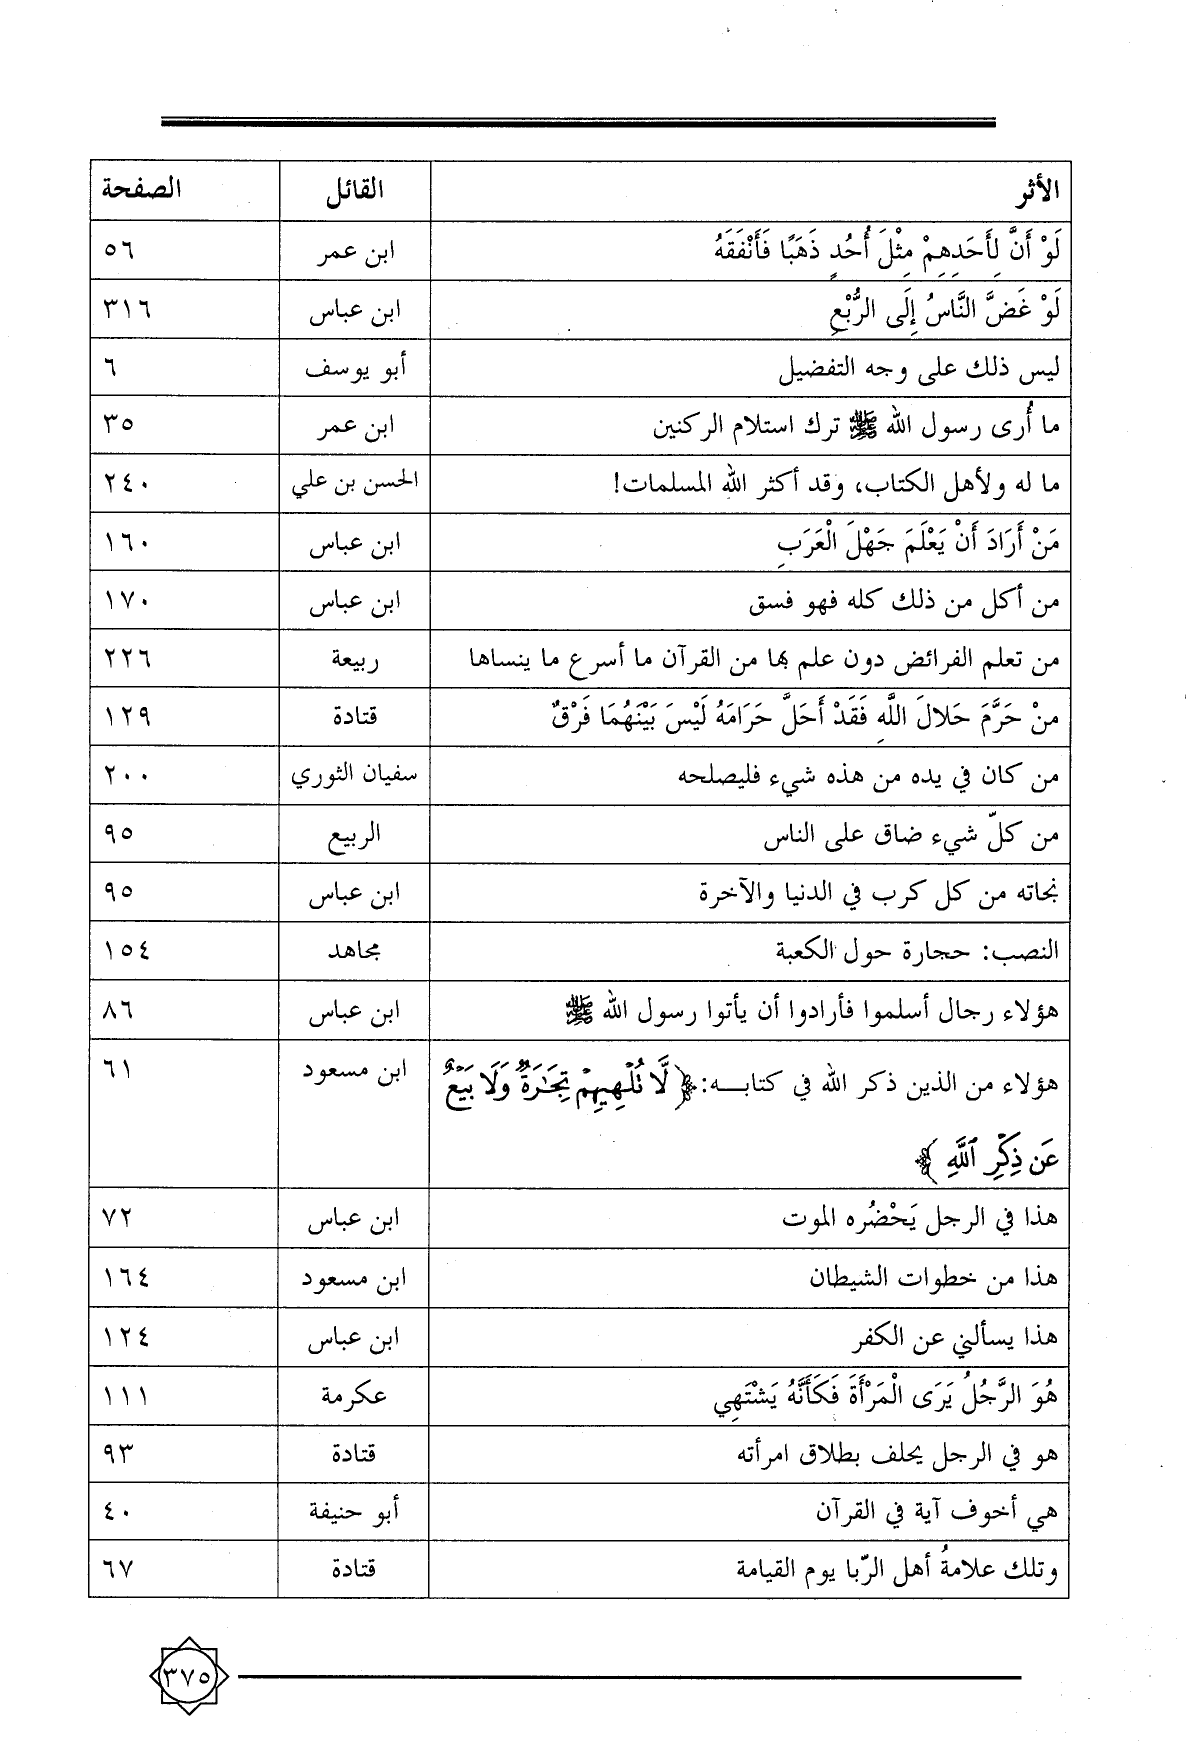 الأثر القائل الصفحة
لَوْ أَنَّ لِأَحَدِهِمْ مِثْلَ أُحُدٍ ذَهَبًا فَأَنْفَقَهُ ابن عمر ٥٦
لَوْ غَضَّ النَّاسُ إِلَى الرُّبْعِ ابن عباس ٣١٦
ليس ذلك على وجه التفضيل أبو يوسف ٦
ما أُرى رسول الله ﷺ ترك استلام الركنين ابن عمر ٣٥
ما له ولأهل الكتاب، وقد أكثر الله المسلمات! الحسن بن علي ٢٤٠
مَنْ أَرَادَ أَنْ يَعْلَمَ جَهْلَ الْعَرَبِ ابن عباس ١٦٠
من أكل من ذلك كله فهو فسق ابن عباس ١٧٠
من تعلم الفرائض دون علم بها من القرآن ما أسرع ما ينساها ربيعة ٢٢٦
منْ حَرَّمَ حَلالَ اللَّهِ فَقَدْ أَحَلَّ حَرَامَهُ لَيْسَ بَيْنَهُمَا فَرْقٌ قتادة ١٢٩
من كان في يده من هذه شيء فليصلحه سفيان الثوري ٢٠٠
من كلّ شيء ضاق على الناس الربيع ٩٥
نجاته من كل كرب في الدنيا والآخرة ابن عباس ٩٥
النصب: حجارة حول الكعبة مجاهد ١٥٤
هؤلاء رجال أسلموا فأرادوا أن يأتوا رسول الله ﷺ ابن عباس ٨٦
هؤلاء من الذين ذكر الله في كتابـــه: ﴿لَّا تُلْهِيهِمْ تِجَٰرَةٌ وَلَا بَيْعٌ ابن مسعود ٦١
عَن ذِكْرِ ٱللَّهِ﴾
هذا في الرجل يَحْضُره الموت ابن عباس ٧٢
هذا من خطوات الشيطان ابن مسعود ١٦٤
هذا يسألني عن الكفر ابن عباس ١٢٤
هُوَ الرَّجُلُ يَرَى الْمَرْأَةَ فَكَأَنَّهُ يَشْتَهِي عكرمة ١١١
هو في الرجل يحلف بطلاق امرأته قتادة ٩٣
هي أخوف آية في القرآن أبو حنيفة ٤٠
وتلك علامةُ أهل الرّبا يوم القيامة قتادة ٦٧
٣٧٥